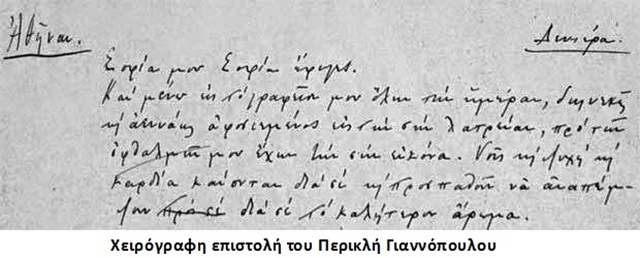 Ἀθῆναι. Δευτέρα.
Σοφία μου Σοφία ἔφυγες.
Καὶ μένω εἰς τὸ γραφεῖον μου ὅλην τὴν ἡμέραν, διηνεκῶς
κὴ ἀενάως ἀφοσιωμένος εἰς τὴν σὴν λατρείαν, πρὸ τῶν
ὀφθαλμῶν μου ἔχων τὴν σὴν εἰκόνα. Νοῦς κὴ ψυχὴ κὴ
καρδία καίονται διὰ σὲ κὴ προσπαθοῦν νὰ ἀναπέμ-
ψουν πρὸς σὲ διὰ σὲ τὸ καλήτερον ἄρωμα.
Χειρόγραφη επιστολή του Περικλή Γιαννόπουλου